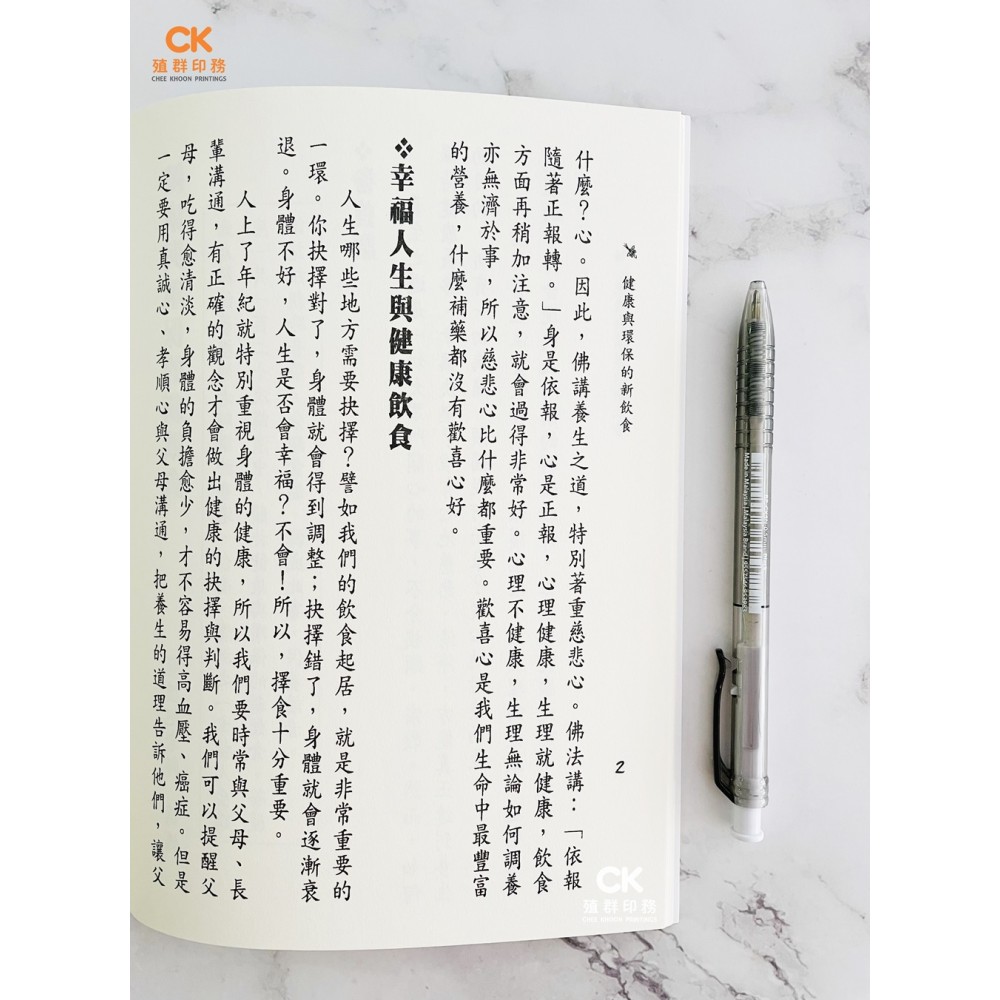 CK
殖群印務
CHEE KHOON PRINTINGS
健康與環保的新飲食
2
什麼?心。因此,佛講養生之道,特別著重慈悲心。佛法講:「依報
隨著正報轉。」身是依報,心是正報,心理健康,生理就健康,飲食
方面再稍加注意,就會過得非常好。心理不健康,生理無論如何調養
亦無濟於事,所以慈悲心比什麼都重要。歡喜心是我們生命中最豐富
的營養,什麼補藥都沒有歡喜心好。
❖幸福人生與健康飲食
人生哪些地方需要抉擇?譬如我們的飲食起居,就是非常重要的
一環。你抉擇對了,身體就會得到調整;抉擇錯了,身體就會逐漸衰
退。身體不好,人生是否會幸福?不會!所以,擇食十分重要。
人上了年紀就特別重視身體的健康,所以我們要時常與父母、長
輩溝通,有正確的觀念才會做出健康的抉擇與判斷。我們可以提醒父
母,吃得愈清淡,身體的負擔愈少,才不容易得高血壓、癌症。但是
一定要用真誠心、孝順心與父母溝通,把養生的道理告訴他們,讓父
CK
殖群印務
CHEE KHOON PRINTINGS